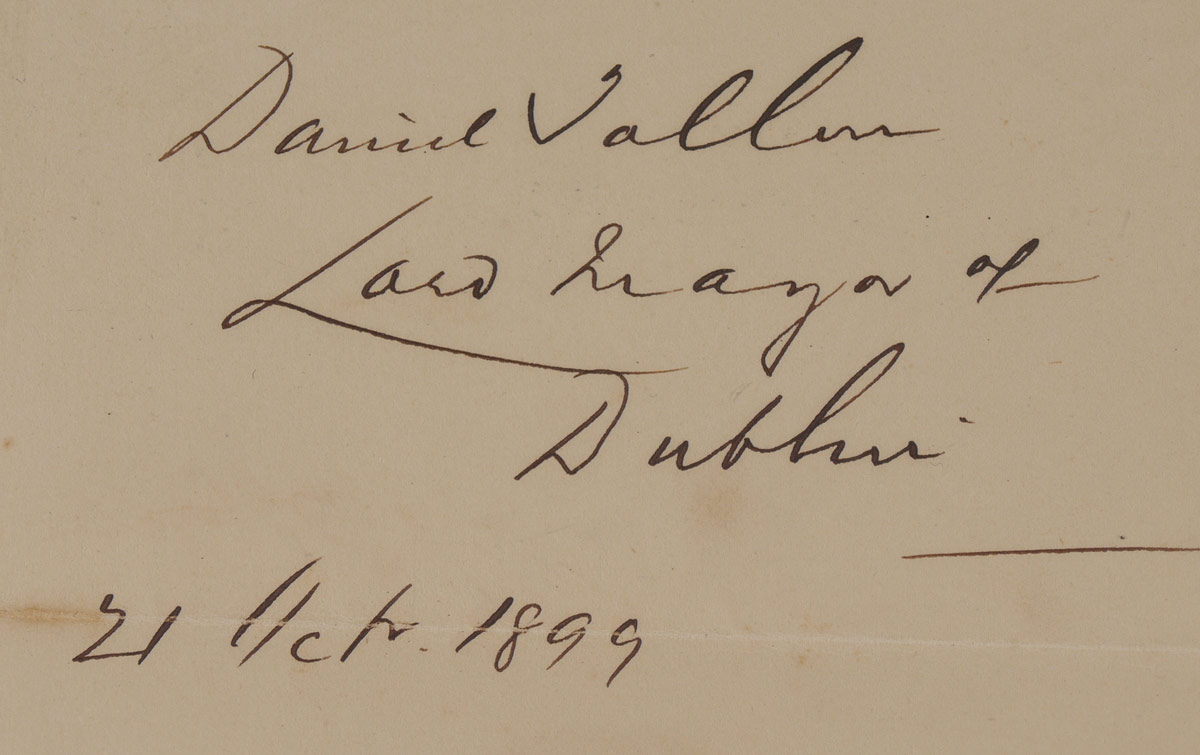 Daniel Tallon
Lord Mayor of
Dublin
21 Octr. 1899